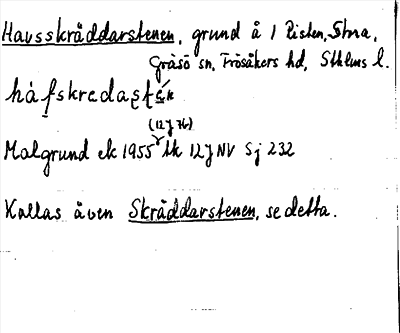 Havsskräddarstenen, grund å 1 Risten, Stora,
Gräsö sn, Frösåkers hd, Sthlms l.
håfskredastɛ́n
(12J 7b)
Malgrund ek 1955 tk 12J NV Sj 232
Kallas även Skräddarstenen, se detta.